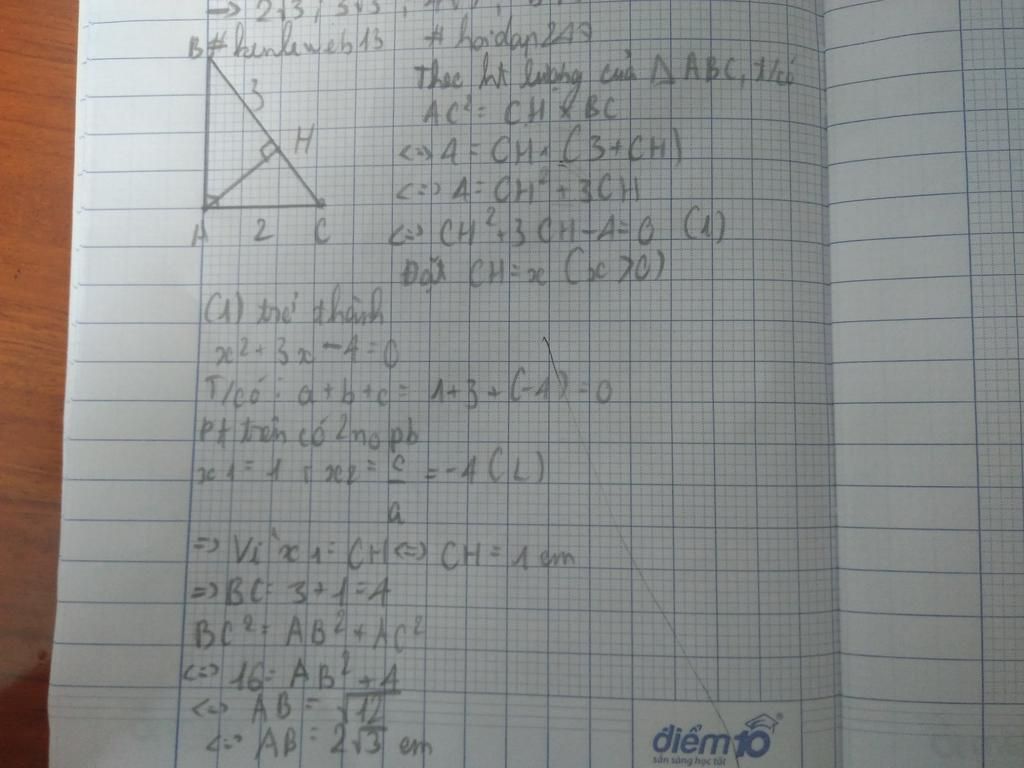 → 2√3 ; 3√3 ;
B # henleweb13 # hoidap247
3
H
A 2 C
Theo ht lượng của △ ABC, t/có
AC² = CH × BC
<=> 4 = CH · (3 + CH)
<=> 4 = CH² + 3CH
<=> CH² + 3CH - 4 = 0 (1)
Đặt CH = x (x > 0)
(1) trở thành
x² + 3x - 4 = 0
T/có : a + b + c = 1 + 3 + (-4) = 0
Pt trên có 2 n₀ pb
x1 = 1 ; x2 = c/a = -4 (L)
=> Vì x1 = CH <=> CH = 1 cm
=> BC = 3 + 1 = 4
BC² = AB² + AC²
<=> 16 = AB² + 4
<=> AB = √12
<=> AB = 2√3 cm
điểm10
sẵn sàng học tốt